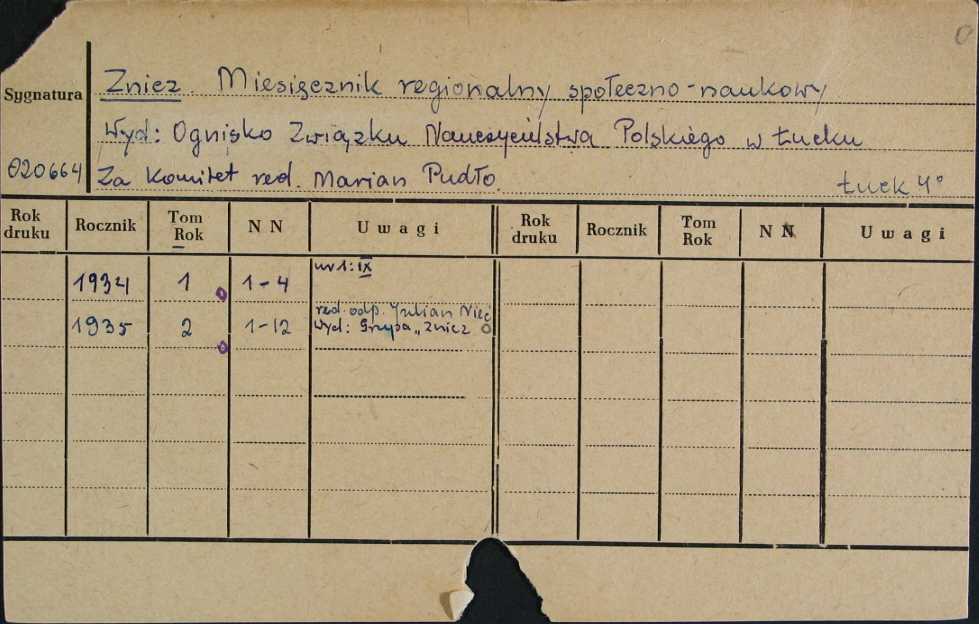 Zniez. Miesięcznik regionalny społeczno-naukowy
Sygnatura
Wyd: Ognisko Związku Nauczycielstwa Polskiego w Łucku
020664 Za Komitet red. Marian Pudło. Łuck 4°
Rok druku Rocznik Tom Rok N N Uwagi Rok druku Rocznik Tom Rok N N Uwagi
nr 1: IX
1934 1 1-4
red. odp. Julian Nieć
1935 2 1-12 Wyd: Grupa „Znicz